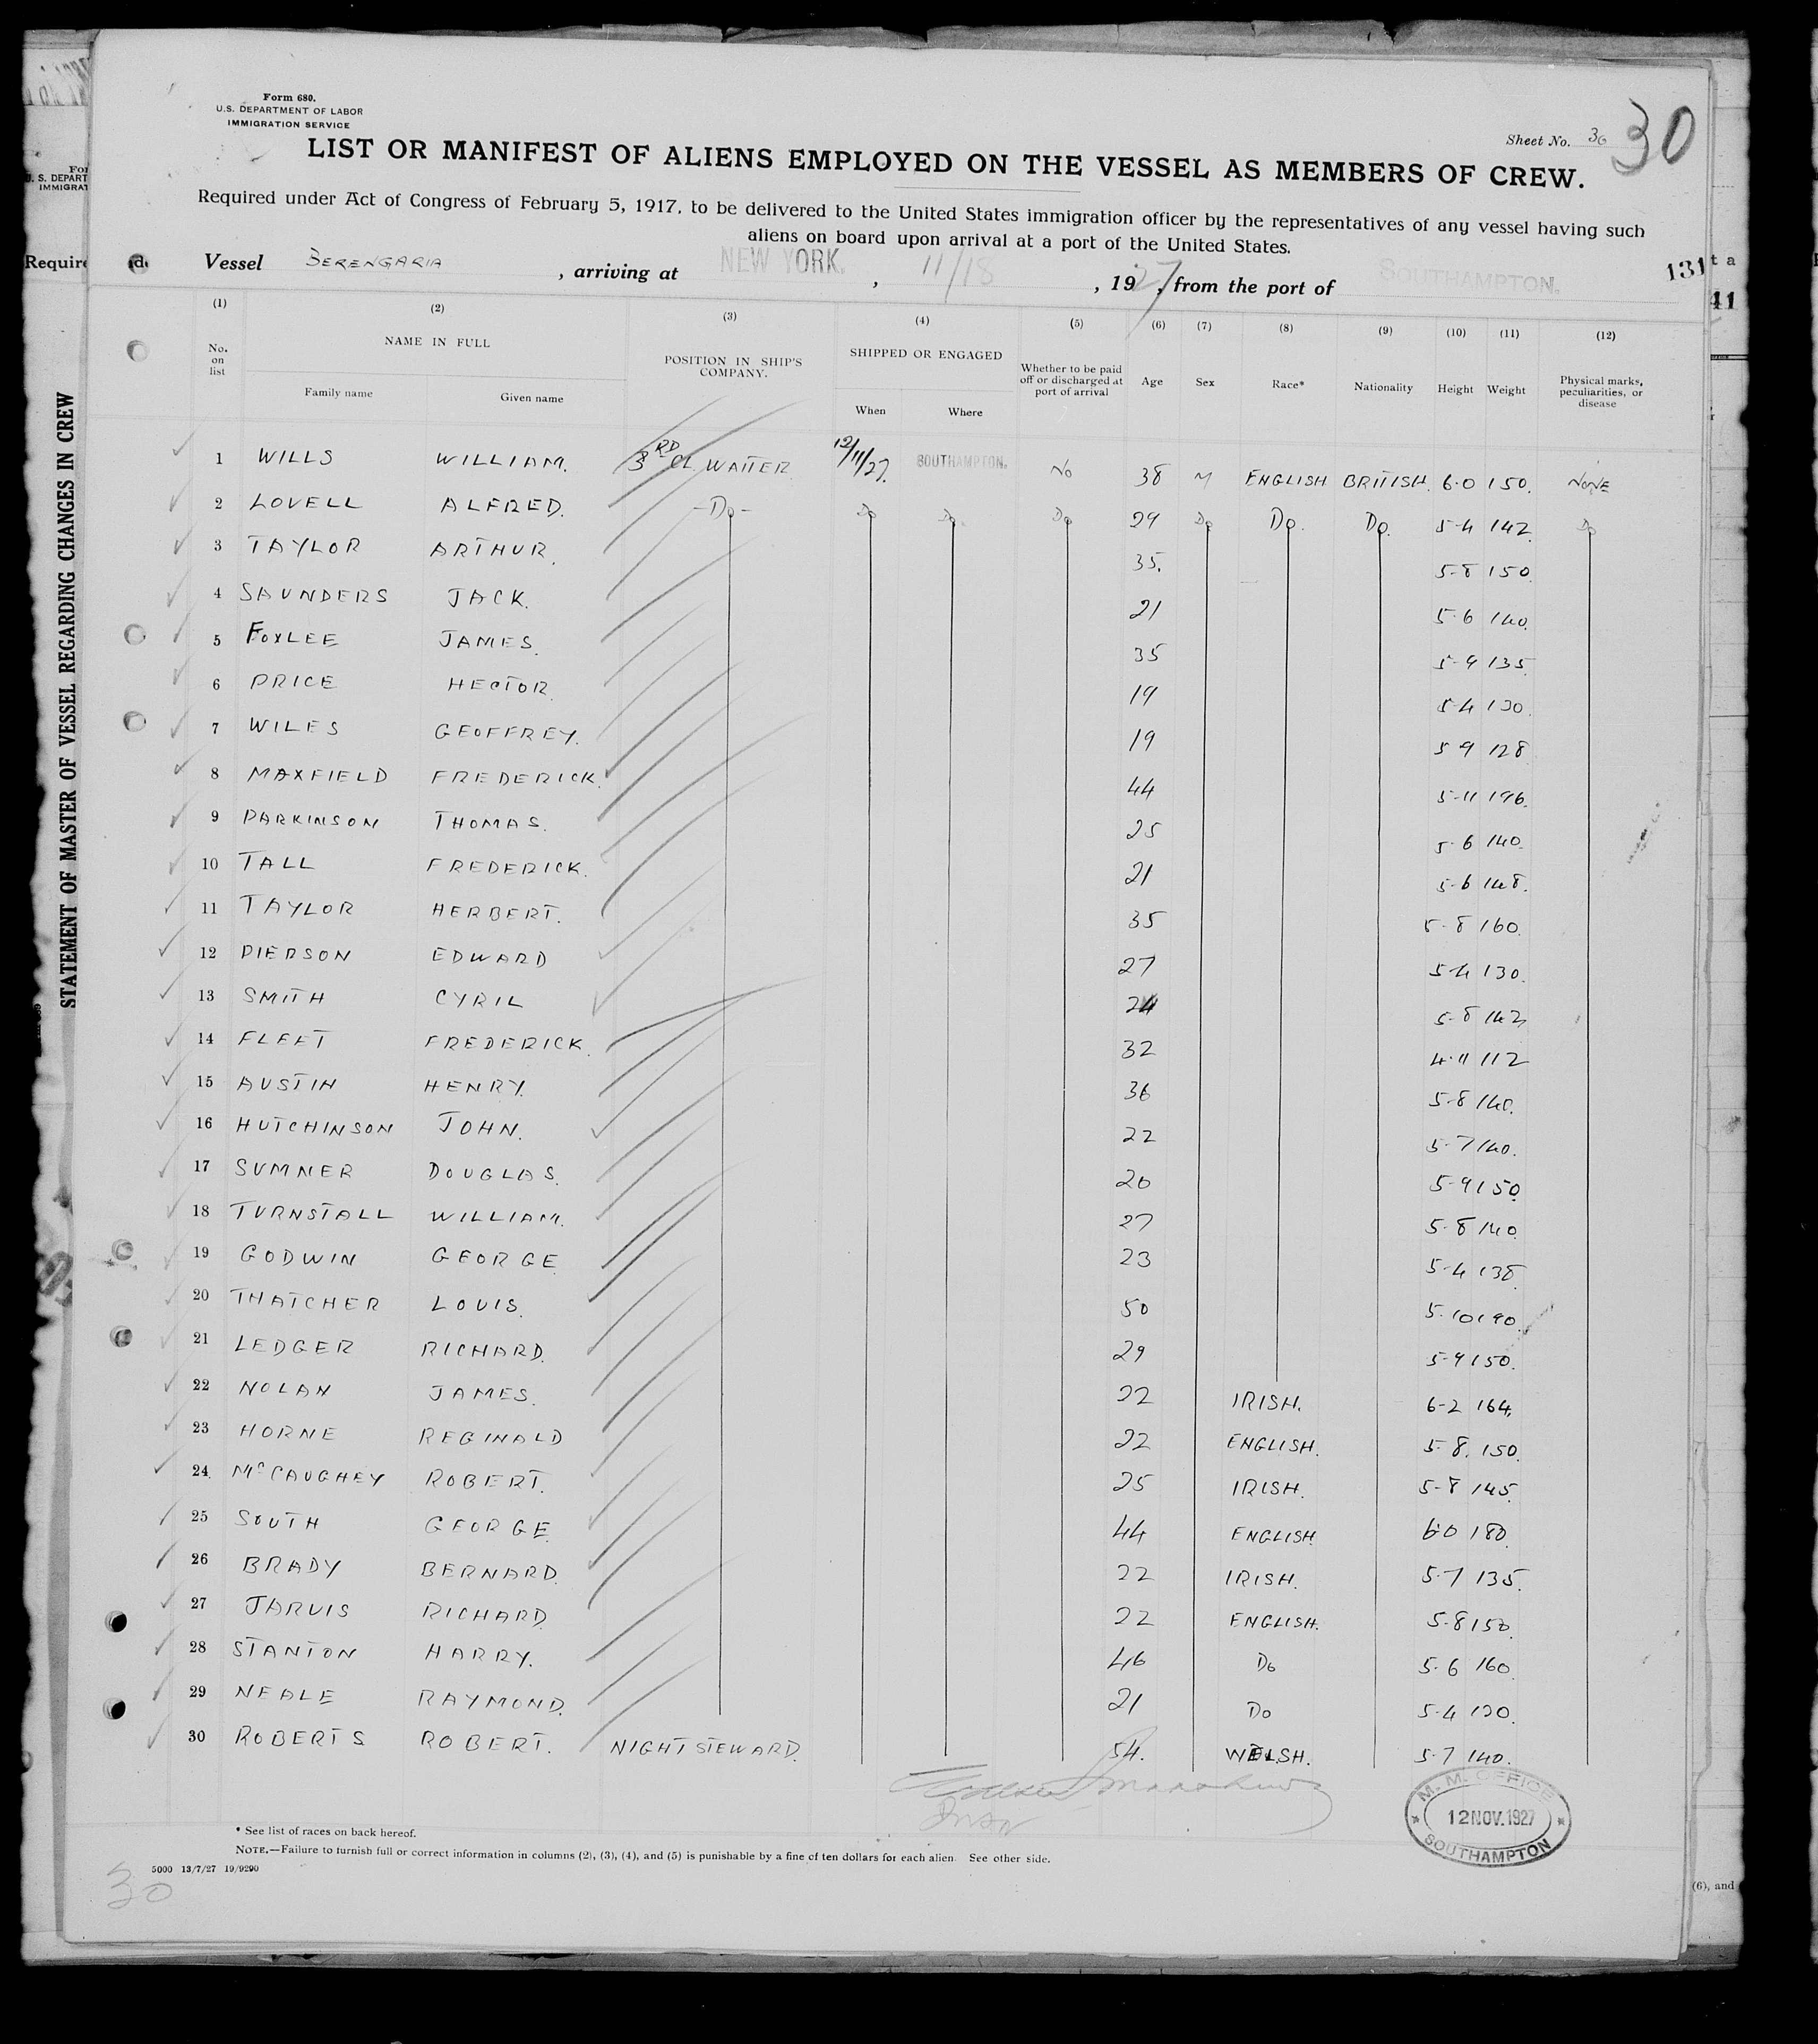 Form 680.
U.S. DEPARTMENT OF LABOR
IMMIGRATION SERVICE
Sheet No. 30 30
LIST OR MANIFEST OF ALIENS EMPLOYED ON THE VESSEL AS MEMBERS OF CREW.
Required under Act of Congress of February 5, 1917, to be delivered to the United States immigration officer by the representatives of any vessel having such
aliens on board upon arrival at a port of the United States.
Vessel BERENGARIA, arriving at NEW YORK, 11/18, 1927, from the port of SOUTHAMPTON. 131
(1) (2) (3) (4) (5) (6) (7) (8) (9) (10) (11) (12)
No. on list NAME IN FULL Family name Given name POSITION IN SHIP'S COMPANY. SHIPPED OR ENGAGED When Where Whether to be paid off or discharged at port of arrival Age Sex Race* Nationality Height Weight Physical marks, peculiarities, or disease
1 WILLS WILLIAM. 3RD CL. WAITER 12/11/27. SOUTHAMPTON. No 38 M ENGLISH BRITISH. 6-0 150. NONE
2 LOVELL ALFRED. -Do- Do Do Do 29 Do Do. Do. 5-4 142. Do
3 TAYLOR ARTHUR. 35. 5-8 150.
4 SAUNDERS JACK. 21 5-6 140.
5 FOXLEE JAMES. 35 5-9 135
6 PRICE HECTOR. 19 5-4 130.
7 WILES GEOFFREY. 19 5-9 128
8 MAXFIELD FREDERICK. 44 5-11 196.
9 PARKINSON THOMAS. 25 5-6 140.
10 TALL FREDERICK. 21 5-6 148.
11 TAYLOR HERBERT. 35 5-8 160.
12 PIERSON EDWARD 27 5-4 130.
13 SMITH CYRIL 24 5-8 142
14 FLEET FREDERICK. 32 4-11 112
15 AUSTIN HENRY. 36 5-8 140.
16 HUTCHINSON JOHN. 22 5-7 140.
17 SUMNER DOUGLAS. 20 5-9 150
18 TURNSTALL WILLIAM. 27 5-8 140
19 GODWIN GEORGE 23 5-4 138
20 THATCHER LOUIS. 50 5-10 190.
21 LEDGER RICHARD. 29 5-9 150.
22 NOLAN JAMES. 22 IRISH. 6-2 164.
23 HORNE REGINALD 22 ENGLISH. 5-8. 150.
24 McCAUGHEY ROBERT. 25 IRISH. 5-8 145.
25 SOUTH GEORGE. 44 ENGLISH. 6-0 180.
26 BRADY BERNARD. 22 IRISH. 5-7 135.
27 JARVIS RICHARD. 22 ENGLISH. 5-8 150.
28 STANTON HARRY. 46 Do 5-6 160.
29 NEALE RAYMOND. 21 Do 5-4 120.
30 ROBERTS ROBERT. NIGHT STEWARD. 54. WELSH. 5-7 140.
M. M. OFFICE
12 NOV. 1927
SOUTHAMPTON
* See list of races on back hereof.
NOTE.—Failure to furnish full or correct information in columns (2), (3), (4), and (5) is punishable by a fine of ten dollars for each alien. See other side.
5000 13/7/27 19/9290
30
STATEMENT OF MASTER OF VESSEL REGARDING CHANGES IN CREW
U. S. DEPART
IMMIGRAT
Require
t a
41
(6), and